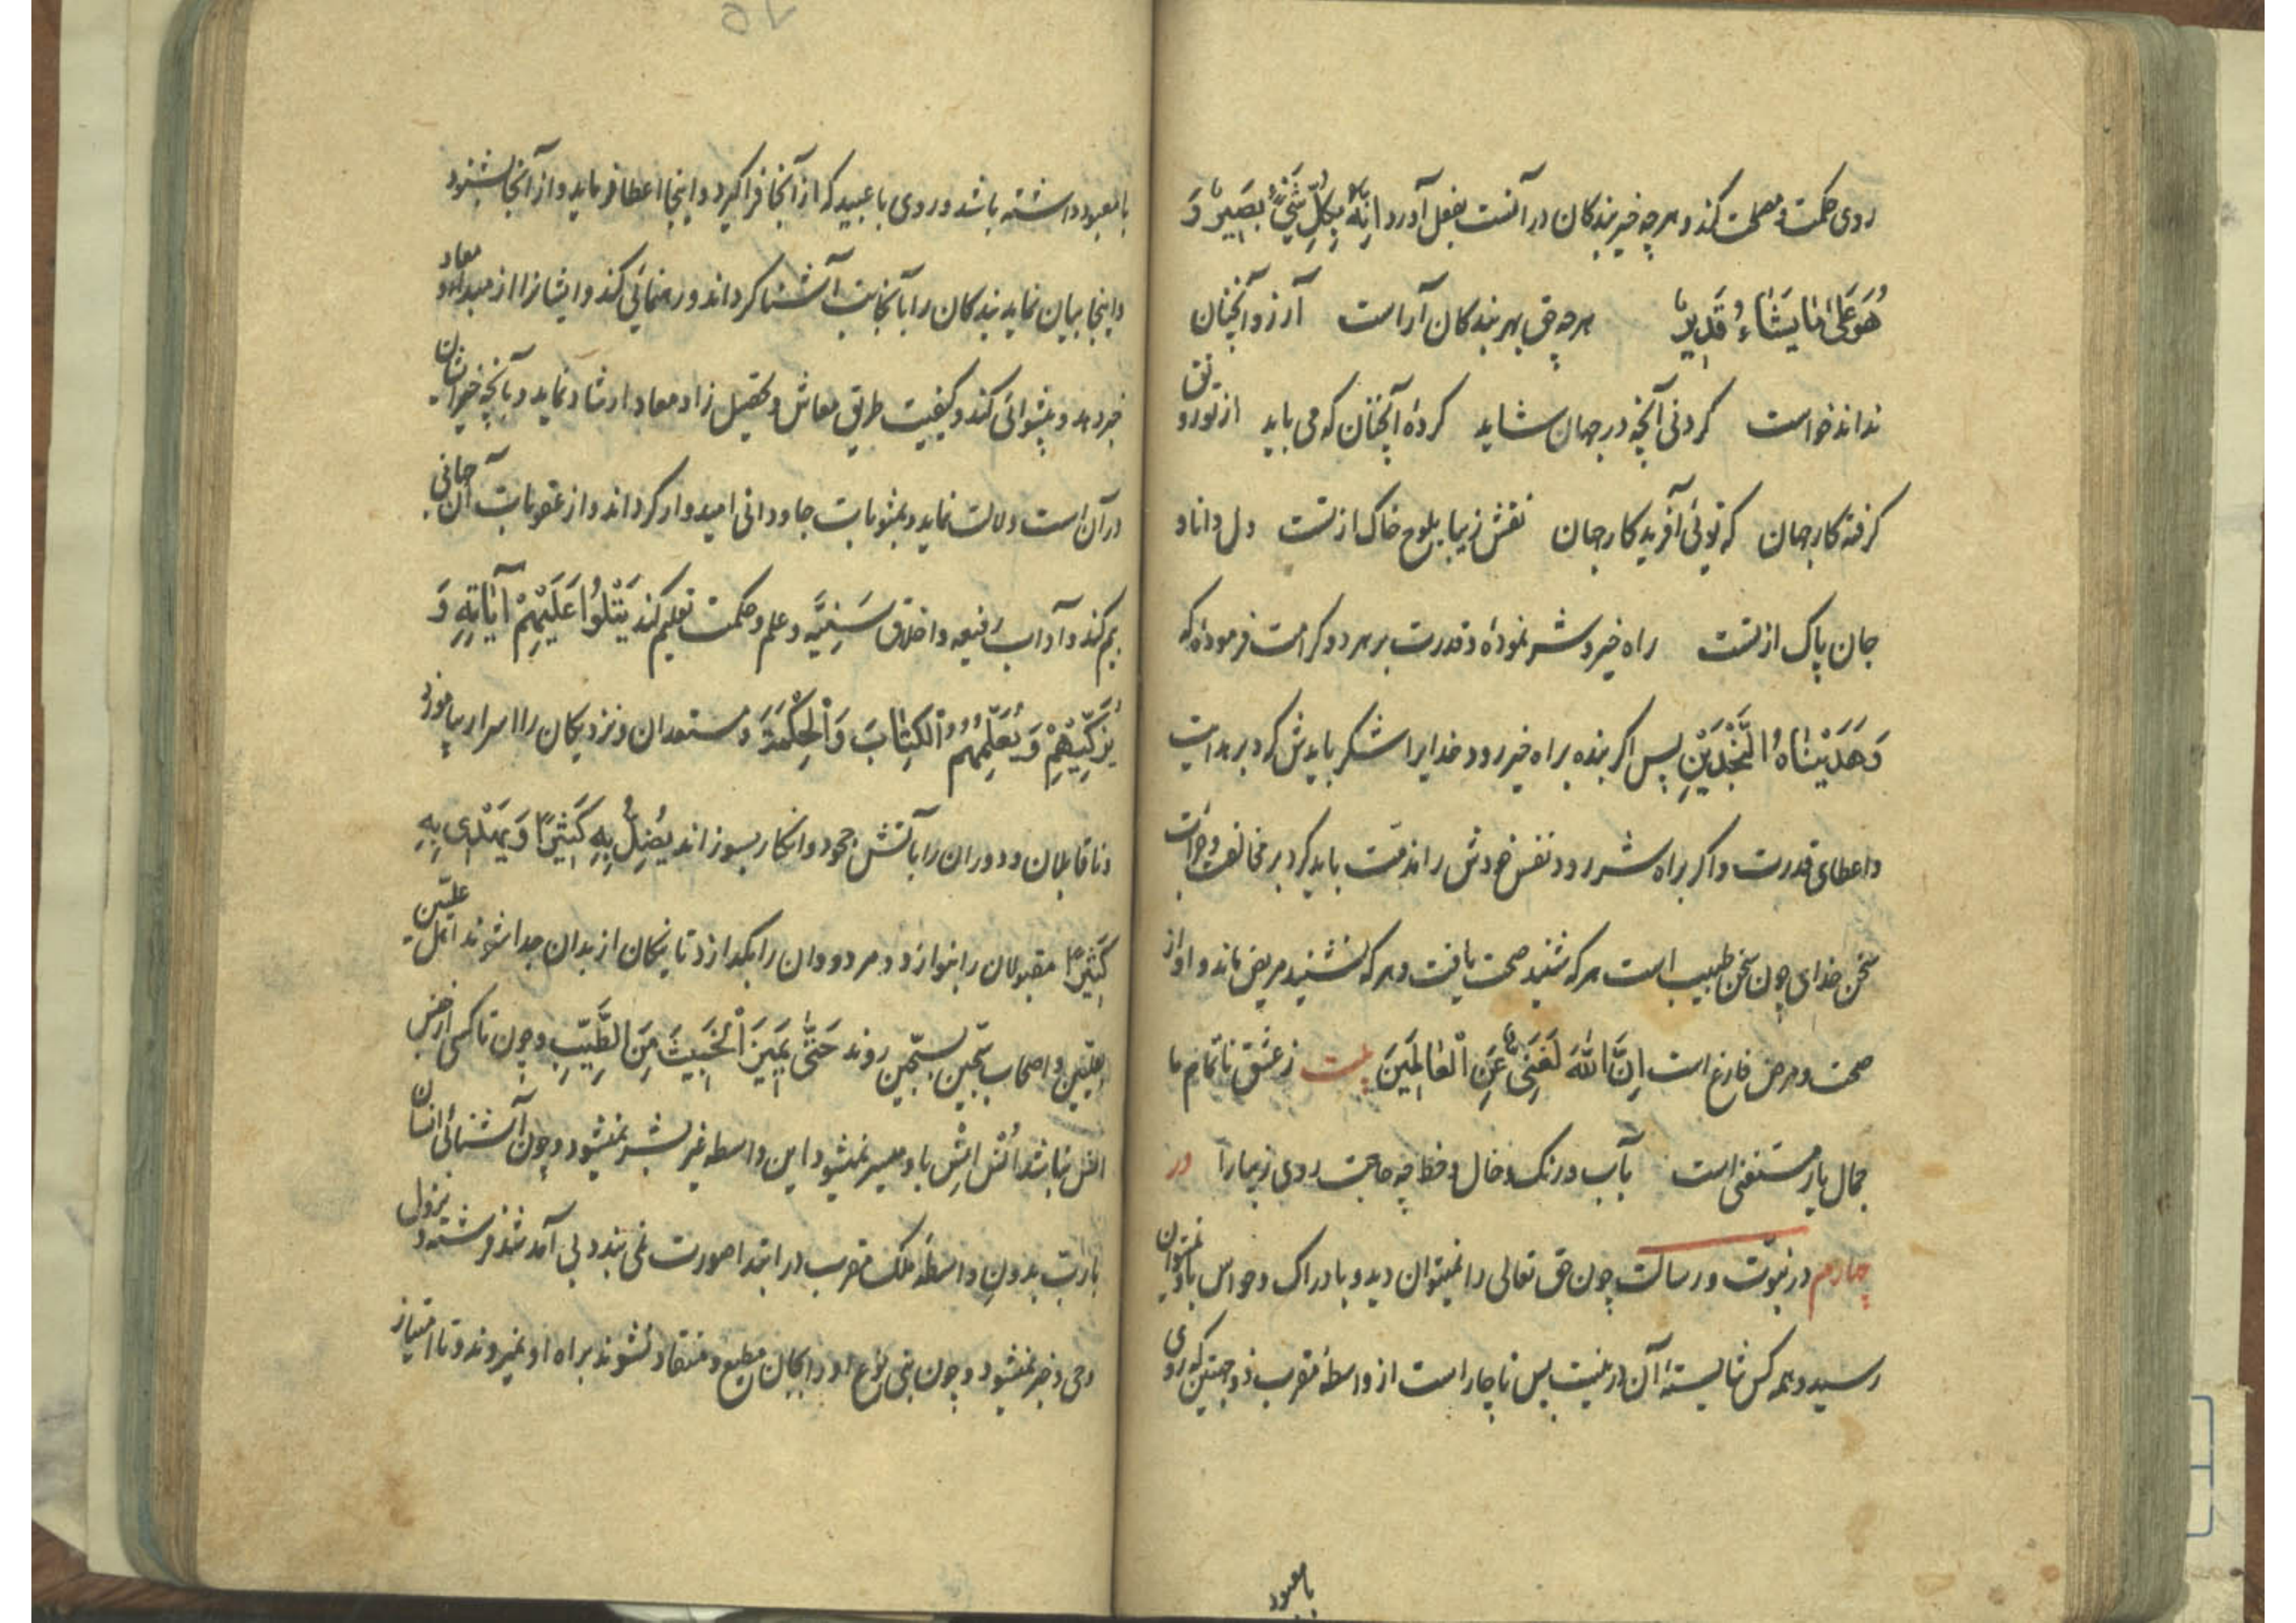 روی حکمت و مصلحت کند و هرچه خیر بندکان در آنست بفعل آورد اِنَّهُ بِکُلِّ شَیْءٍ بَصِیرٌ وَ
هُوَ عَلیٰ مٰا یَشٰاءُ قَدِیرٌ هرچه حق بهر بندکان آراست آرزو آنچنان
نداند خواست کردنی آنچه در جهان شاید کردهٔ آنچنان که می باید از تو رونق
کرفته کار جهان که توئی آفریدکار جهان نقش زیبا بلوح خاک از تست دل دانا و
جان پاک از تست راه خیر و شر نمودهٔ و قدرت بر هر دو کرامت فرمودهٔ که
وَهَدَیْنٰاهُ النَّجْدَیْنِ پس اکر بنده براه خیر رود خدایرا شکر بایدش کرد بر هدایت
و اعطای قدرت و اکر براه شر رود نفس خودش را مذمت باید کرد بر مخالفت و جرأت
سخن خدای چون سخن طبیب است هر که شنید صحت یافت و هر که نشنید مریض ماند و او از
صحت و مرض فارغ است اِنَّ اللّٰهَ لَغَنِیٌّ عَنِ الْعٰالَمِینَ بیت ز عشق ناتمام ما
جمال یار مستغنی است بآب و رنک و خال و خط چه حاجت روی زیبا را در
چهارم در نبوّت و رسالت چون حق تعالی را نمیتوان دید و بادراک و حواس باو نمیتوان
رسید و همه کس شایستهٔ آن در نیست پس ناچار است از واسطهٔ مقرب ذو جهتین که روی
بامعبود
بامعبود داشته باشد و روی با عبید که از آنجا فرا کیرد و اینجا اعطا فرماید و از آنجا بشنود
و اینجا بیان نماید بندکان را بآنجانب آشنا کرداند و رهنمائی کند و ایشانرا از مبدأ و معاد
خبر دهد و پیشوائی کند و کیفیت طریق معاش و تحصیل زاد معاد ارشاد نماید و بآنچه خیر ایشان
در آن است دلالت نماید و بمثوبات جاودانی امیدوار کرداند و از عقوبات آن جهانی
بیم کند و آداب رفیعه و اخلاق سَنِیَّه و علم و حکمت تعلیم کند یَتْلُوا عَلَیْهِمْ آیٰاتِهِ وَ
یُزَکِّیهِمْ وَ یُعَلِّمُهُمُ الْکِتٰابَ وَالْحِکْمَةَ و مستعدان و نزدیکان را اسرار بیاموزد
و ناقابلان و دوران را بآتش جحود و انکار بسوزاند یُضِلُّ بِهِ کَثِیرًا وَ یَهْدِی بِهِ
کَثِیرًا مقبولان را بنوازد و مردودان را بکدازد تا نیکان از بدان جدا شوند اهل علیّین
بعلیّین و اصحاب سجّین بسجّین روند حَتّٰی یَمِیزَ الْخَبِیثَ مِنَ الطَّیِّبِ و چون تا کسی از جنس
انس نباشد اُنس اِنس باو میسر نمیشود این واسطه غیر بشر نمیشود و چون آشنائی انسان
با ربّ بدون واسطهٔ ملک مقرب در ابتدا صورت نمی بندد بی آمد شد فرشته و نزول
وحی و خبر نمیشود و چون بنی نوع او را بکان مطیع و منقاد نشوند براه او نمیروند و تا امتیاز